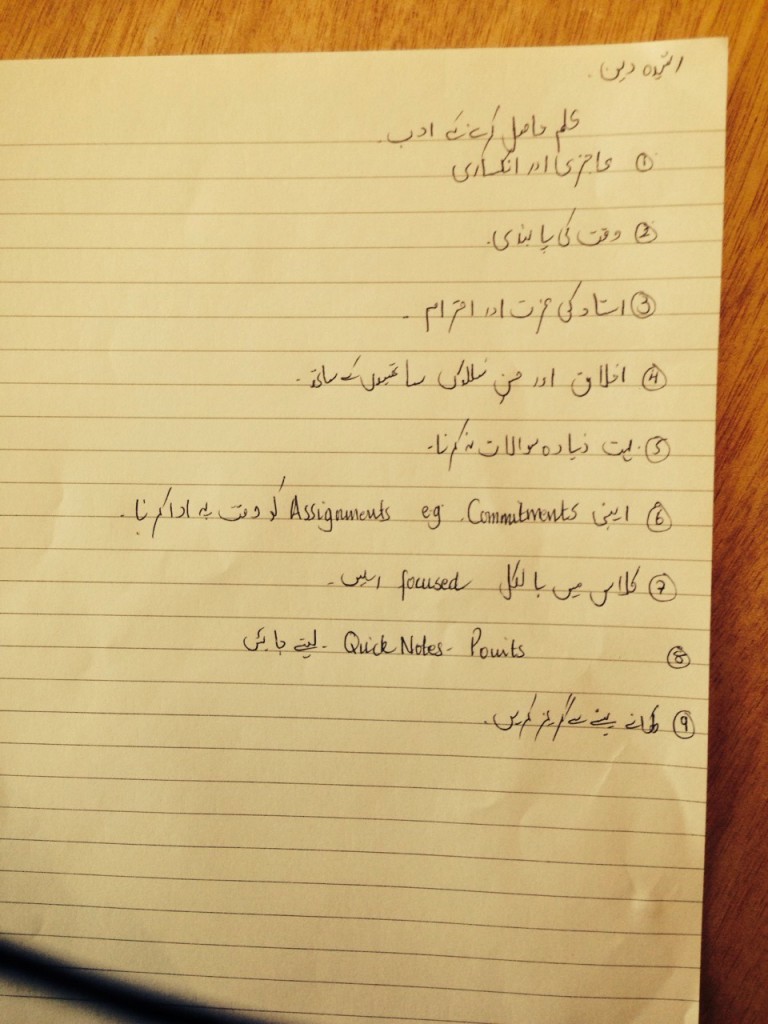 علم حاصل کرنے کے ادب۔
① عاجزی اور انکساری
② وقت کی پابندی۔
③ استاد کی عزت اور احترام۔
④ اخلاق اور حسنِ سلوک ساتھیوں کے ساتھ۔
⑤ بہت زیادہ سوالات نہ کرنا۔
⑥ اپنی Commitments eg. Assignments کو وقت پہ ادا کرنا۔
⑦ کلاس میں بالکل focused رہیں۔
⑧ Points - Quick Notes - لیتے جائیں
⑨ کھانے پینے سے گریز کریں۔